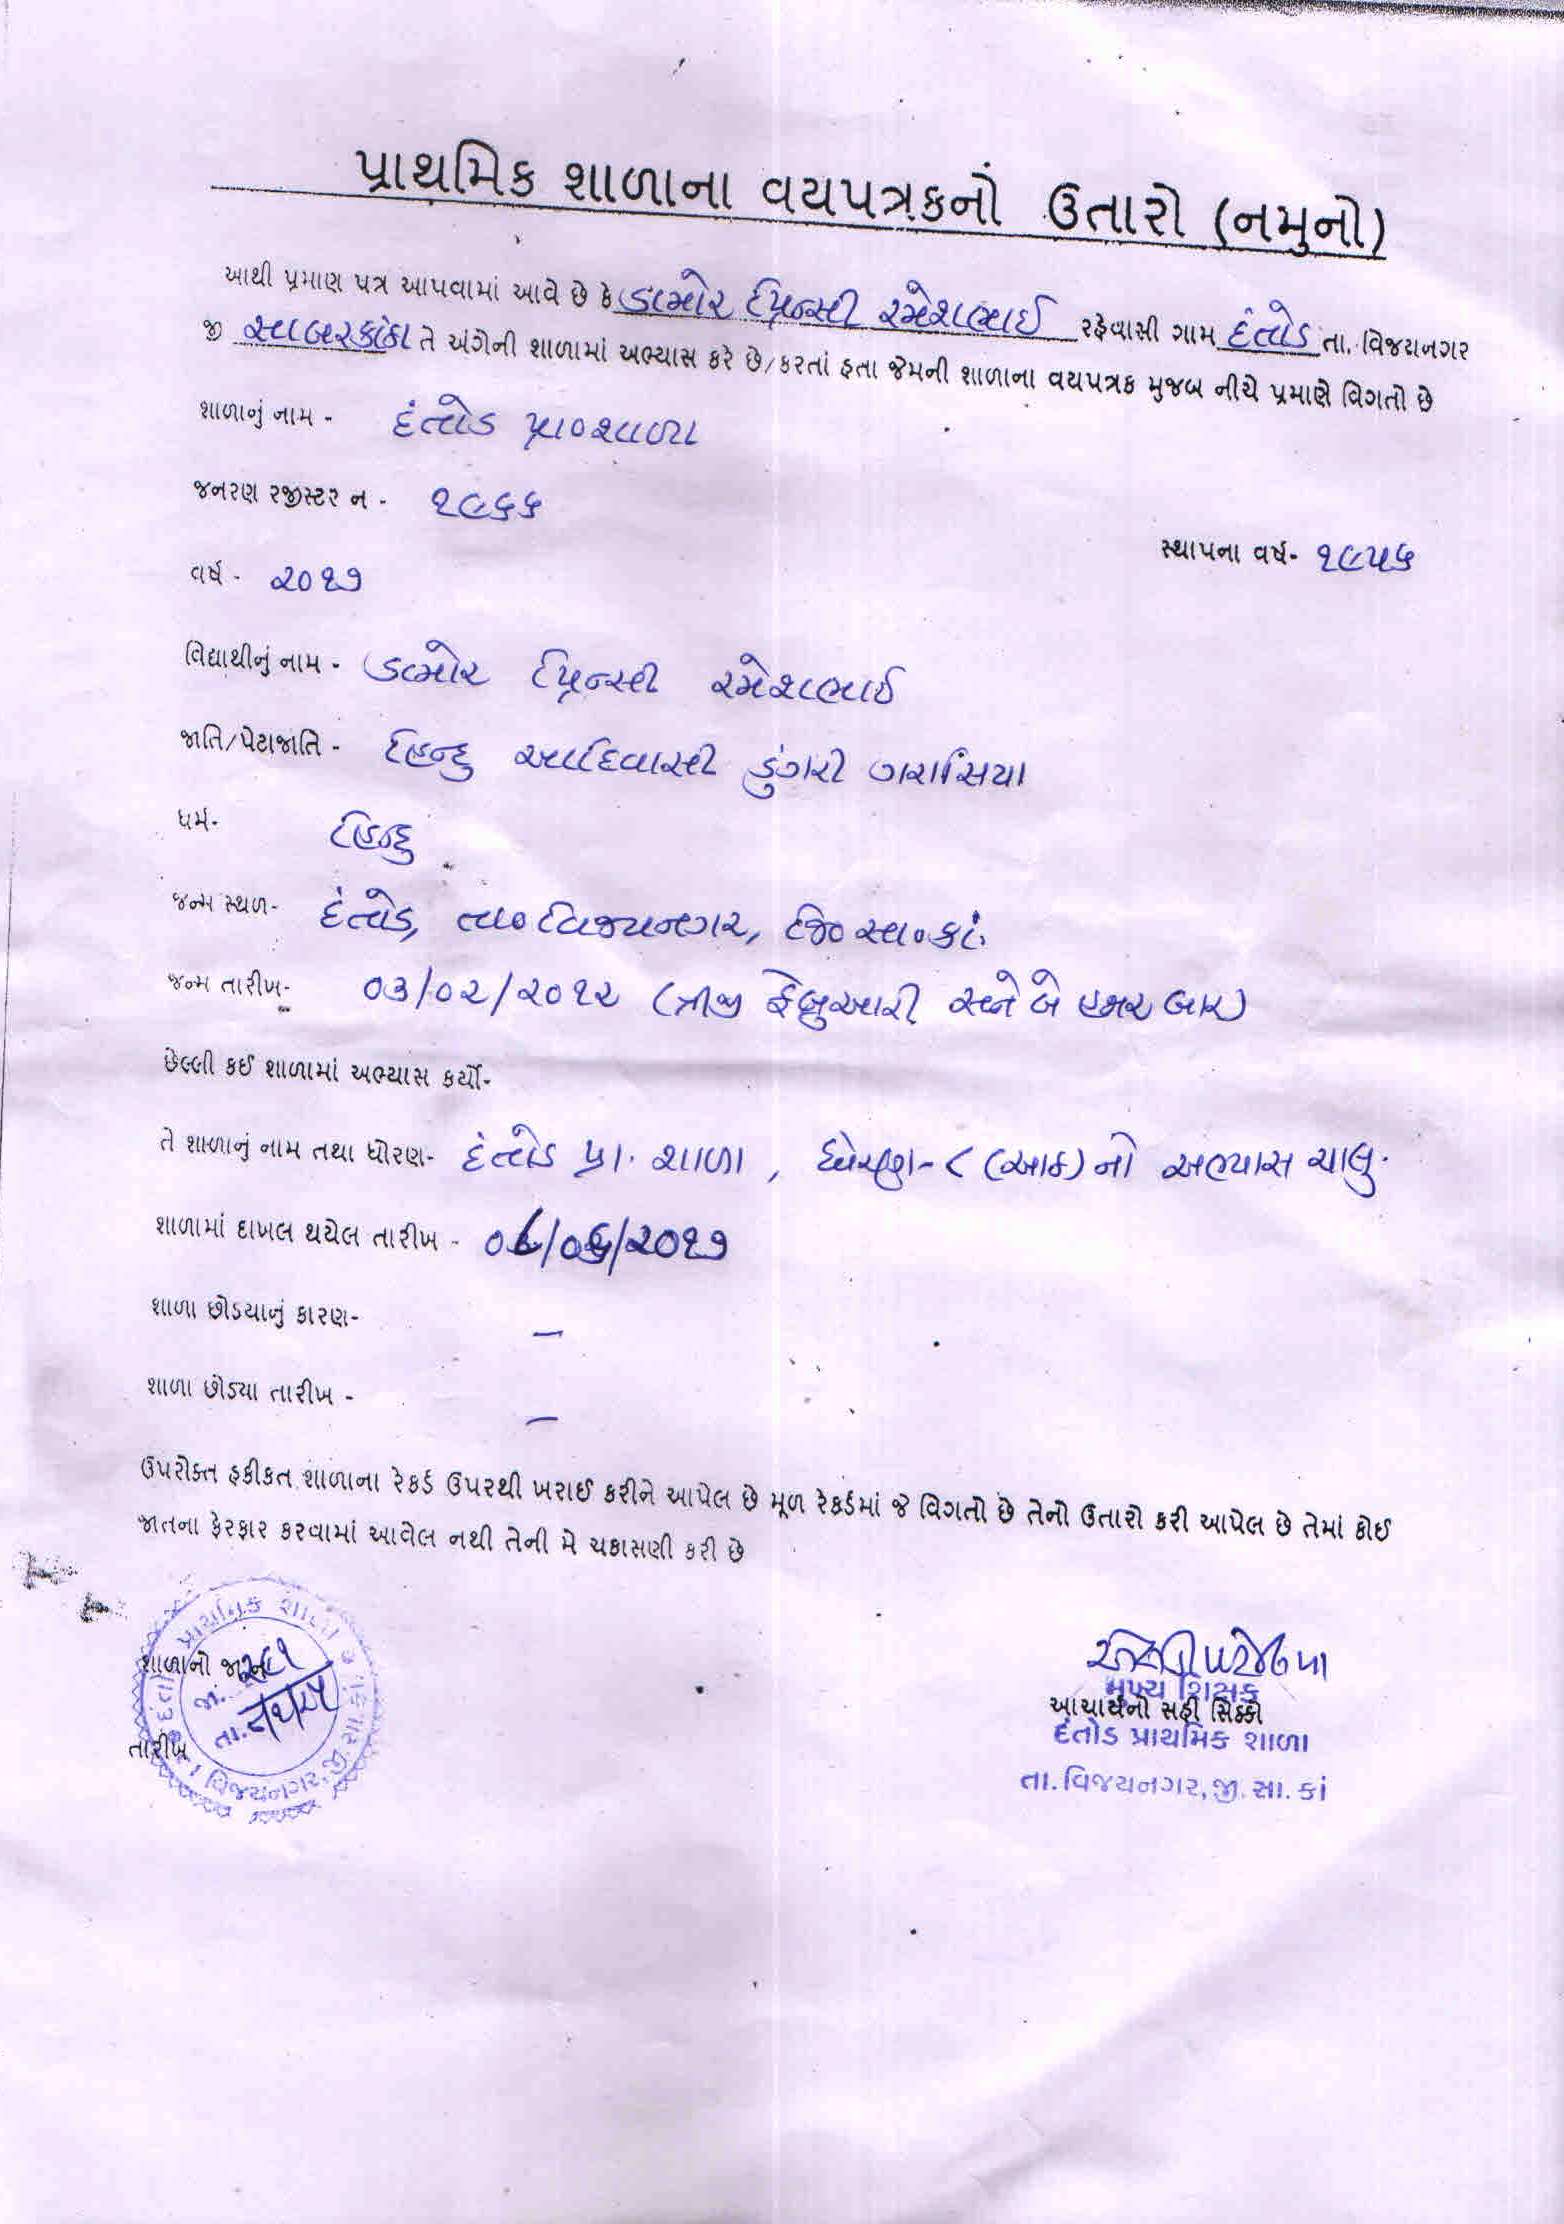 પ્રાથમિક શાળાના વયપત્રકનો ઉતારો (નમુનો)
આથી પ્રમાણ પત્ર આપવામાં આવે છે કે ડામોર પ્રિન્સી રમેશભાઈ રહેવાસી ગામ દંતોડ તા. વિજયનગર
જી સાબરકાંઠા તે અંગેની શાળામાં અભ્યાસ કરે છે/કરતાં હતા જેમની શાળાના વયપત્રક મુજબ નીચે પ્રમાણે વિગતો છે
શાળાનું નામ - દંતોડ પ્રા૦શાળા
જનરણ રજીસ્ટર ન - ૧૯૬૬
સ્થાપના વર્ષ- ૧૯૫૬
વર્ષ - ૨૦૧૭
વિદ્યાથીનું નામ - ડામોર પ્રિન્સી રમેશભાઈ
જાતિ/પેટાજાતિ - હિન્દુ આદિવાસી ડુંગરી ગરાસિયા
ધર્મ- હિન્દુ
જન્મ સ્થળ- દંતોડ, તા૦ વિજયનગર, જિ૦ સા.કાં.
જન્મ તારીખ- ૦૩/૦૨/૨૦૧૨ (ત્રીજી ફેબ્રુઆરી સને બે હજાર બાર)
છેલ્લી કઈ શાળામાં અભ્યાસ કર્યો-
તે શાળાનું નામ તથા ધોરણ- દંતોડ પ્રા. શાળા , ધોરણ - ૮ (આઠ) નો અભ્યાસ ચાલુ.
શાળામાં દાખલ થયેલ તારીખ - ૦૮/૦૬/૨૦૧૭
શાળા છોડયાનું કારણ- –
શાળા છોડયા તારીખ - –
ઉપરોક્ત હકીકત શાળાના રેકર્ડ ઉપરથી ખરાઈ કરીને આપેલ છે મૂળ રેકર્ડમાં જે વિગતો છે તેનો ઉતારો કરી આપેલ છે તેમાં કોઈ
જાતના ફેરફાર કરવામાં આવેલ નથી તેની મે ચકાસણી કરી છે
પ્રાથમિક શાળા
શાળાનો
જા.
તા.
તારીખ
વિજયનગર
મુખ્ય શિક્ષક
આચાર્યનો સહી સિક્કો
દંતોડ પ્રાથમિક શાળા
તા.વિજયનગર,જી.સા.કાં